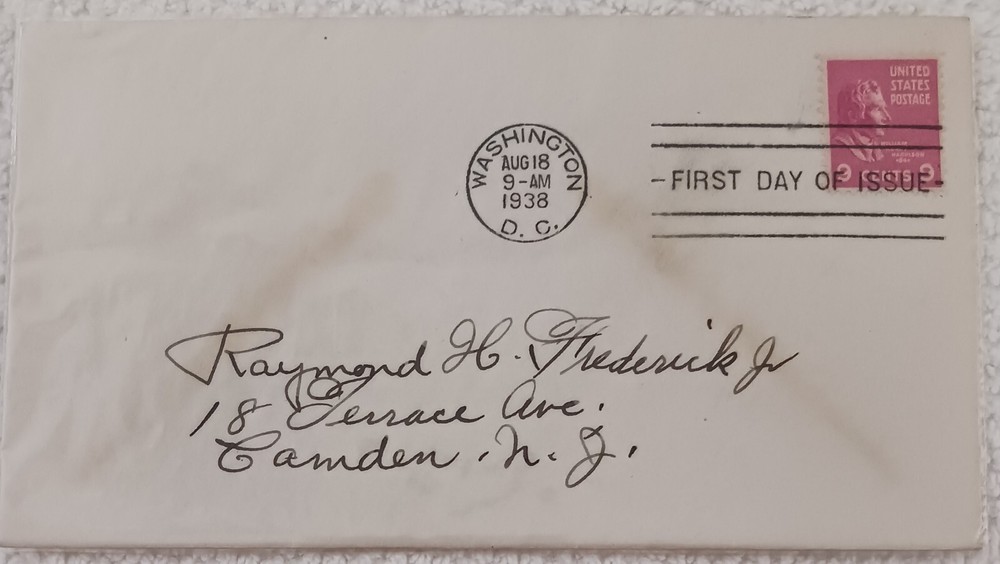 UNITED
STATES
POSTAGE
WILLIAM
HARRISON
1841
9 CENTS 9
WASHINGTON
AUG 18
9-AM
1938
D. C.
-FIRST DAY OF ISSUE-
Raymond H. Frederick Jr
18 Terrace Ave.
Camden. N. J.